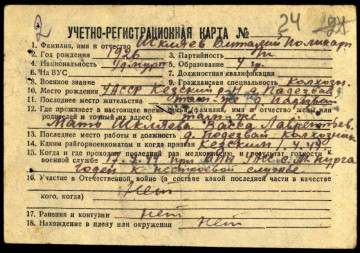 2 24
УЧЕТНО-РЕГИСТРАЦИОННАЯ КАРТА №
1. Фамилия, имя и отчество Шкляев Виталий Поликарп
2. Год рождения 1926 3. Партийность б/п
4. Национальность удмурт 5. Образование 4 гр.
6. № ВУС 7. Должностная квалификация
8. Военное звание 9. Гражданская специальность Колхозн.
10. Место рождения УАССР Кезский р-н д. Падезвай
11. Последнее место жительства
12. Где проживает в настоящее время семья (фамилия, имя и отчество жены или
родителей и точный их адрес) там-же
Мать Шкляева
13. Последнее место работы и должность колхозник
14. Каким райгорвоенкоматом и когда призван Кезским
15. Когда и где проходил последний раз медкомиссию и результат годности к
военной службе
годен к нестроевой службе
16. Участие в Отечественной войне (в составе какой последней части в качестве
кого, когда) нет
17. Ранения и контузии нет
18. Нахождение в плену или окружении нет